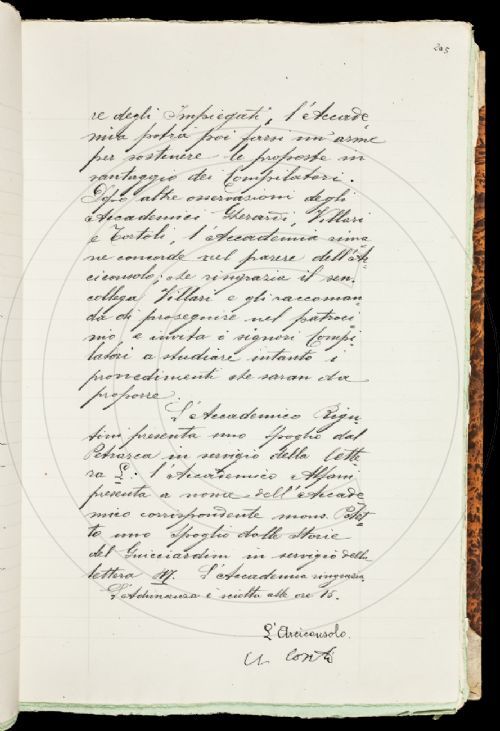 205
re degli Impiegati, l'Accade
mia potrà poi farsi un'arme
per sostenere le proposte in
vantaggio dei Compilatori.
Dopo altre osservazioni degli
Accademici Gherardi, Villari
e Tortoli, l'Accademia rima
ne concorde nel parere dell'Ar
ciconsolo; che ringrazia il sen.
collega Villari e gli raccoman
da di proseguire nel patroci
nio, e invita i signori Compi
latori a studiare intanto i
provvedimenti che saran da
proporre.
L'Accademico Rigu
tini presenta uno Spoglio dal
Petrarca in servigio della lette
ra L: l'Accademico Alfani
presenta a nome dell'Accade
mico corrispondente mons.
to uno Spoglio dalle Storie
del Guicciardini in servigio della
lettera M. L'Accademia ringrazia.
L'Adunanza è sciolta alle ore 15.
L'Arciconsolo.
A. Conti